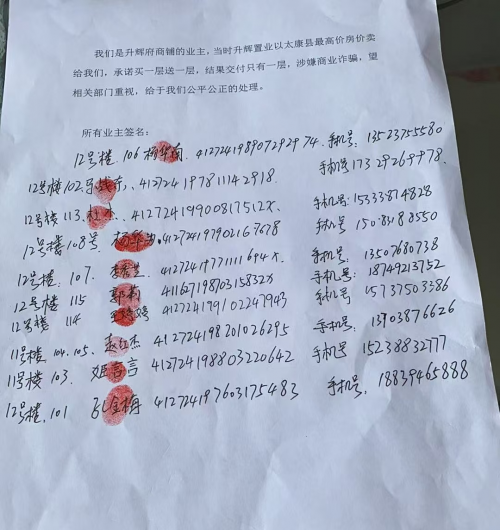 我们是升辉府商铺的业主，当时升辉置业以太康县最高价房价卖
给我们，承诺买一层送一层，结果交付只有一层，涉嫌商业诈骗，望
相关部门重视，给于我们公平公正的处理。
所有业主签名：
12号楼. 106 412724198907292974 手机号: 13523755580
12号楼102. 412724197811142918. 手机号: 17329269978.
12号楼 113. 41272419900817512X. 手机号: 15333874828
12号楼108号 412724197902167678 手机号: 15083188550
12号楼. 107. 41272419771111694X. 手机号: 13507680738
12号楼 115 郭莉 41162719870315832X 手机号: 18749213752
12号楼 114 412724199102247943 手机号 15737503386
11号楼. 104. 105. 赵红杰 412724198201026295 手机号: 13903876626
11号楼 103. 姬言言 412724198803220642 手机号 15238832777
12号楼. 101 孔金梅 412724197603175483 手机号: 18839465888